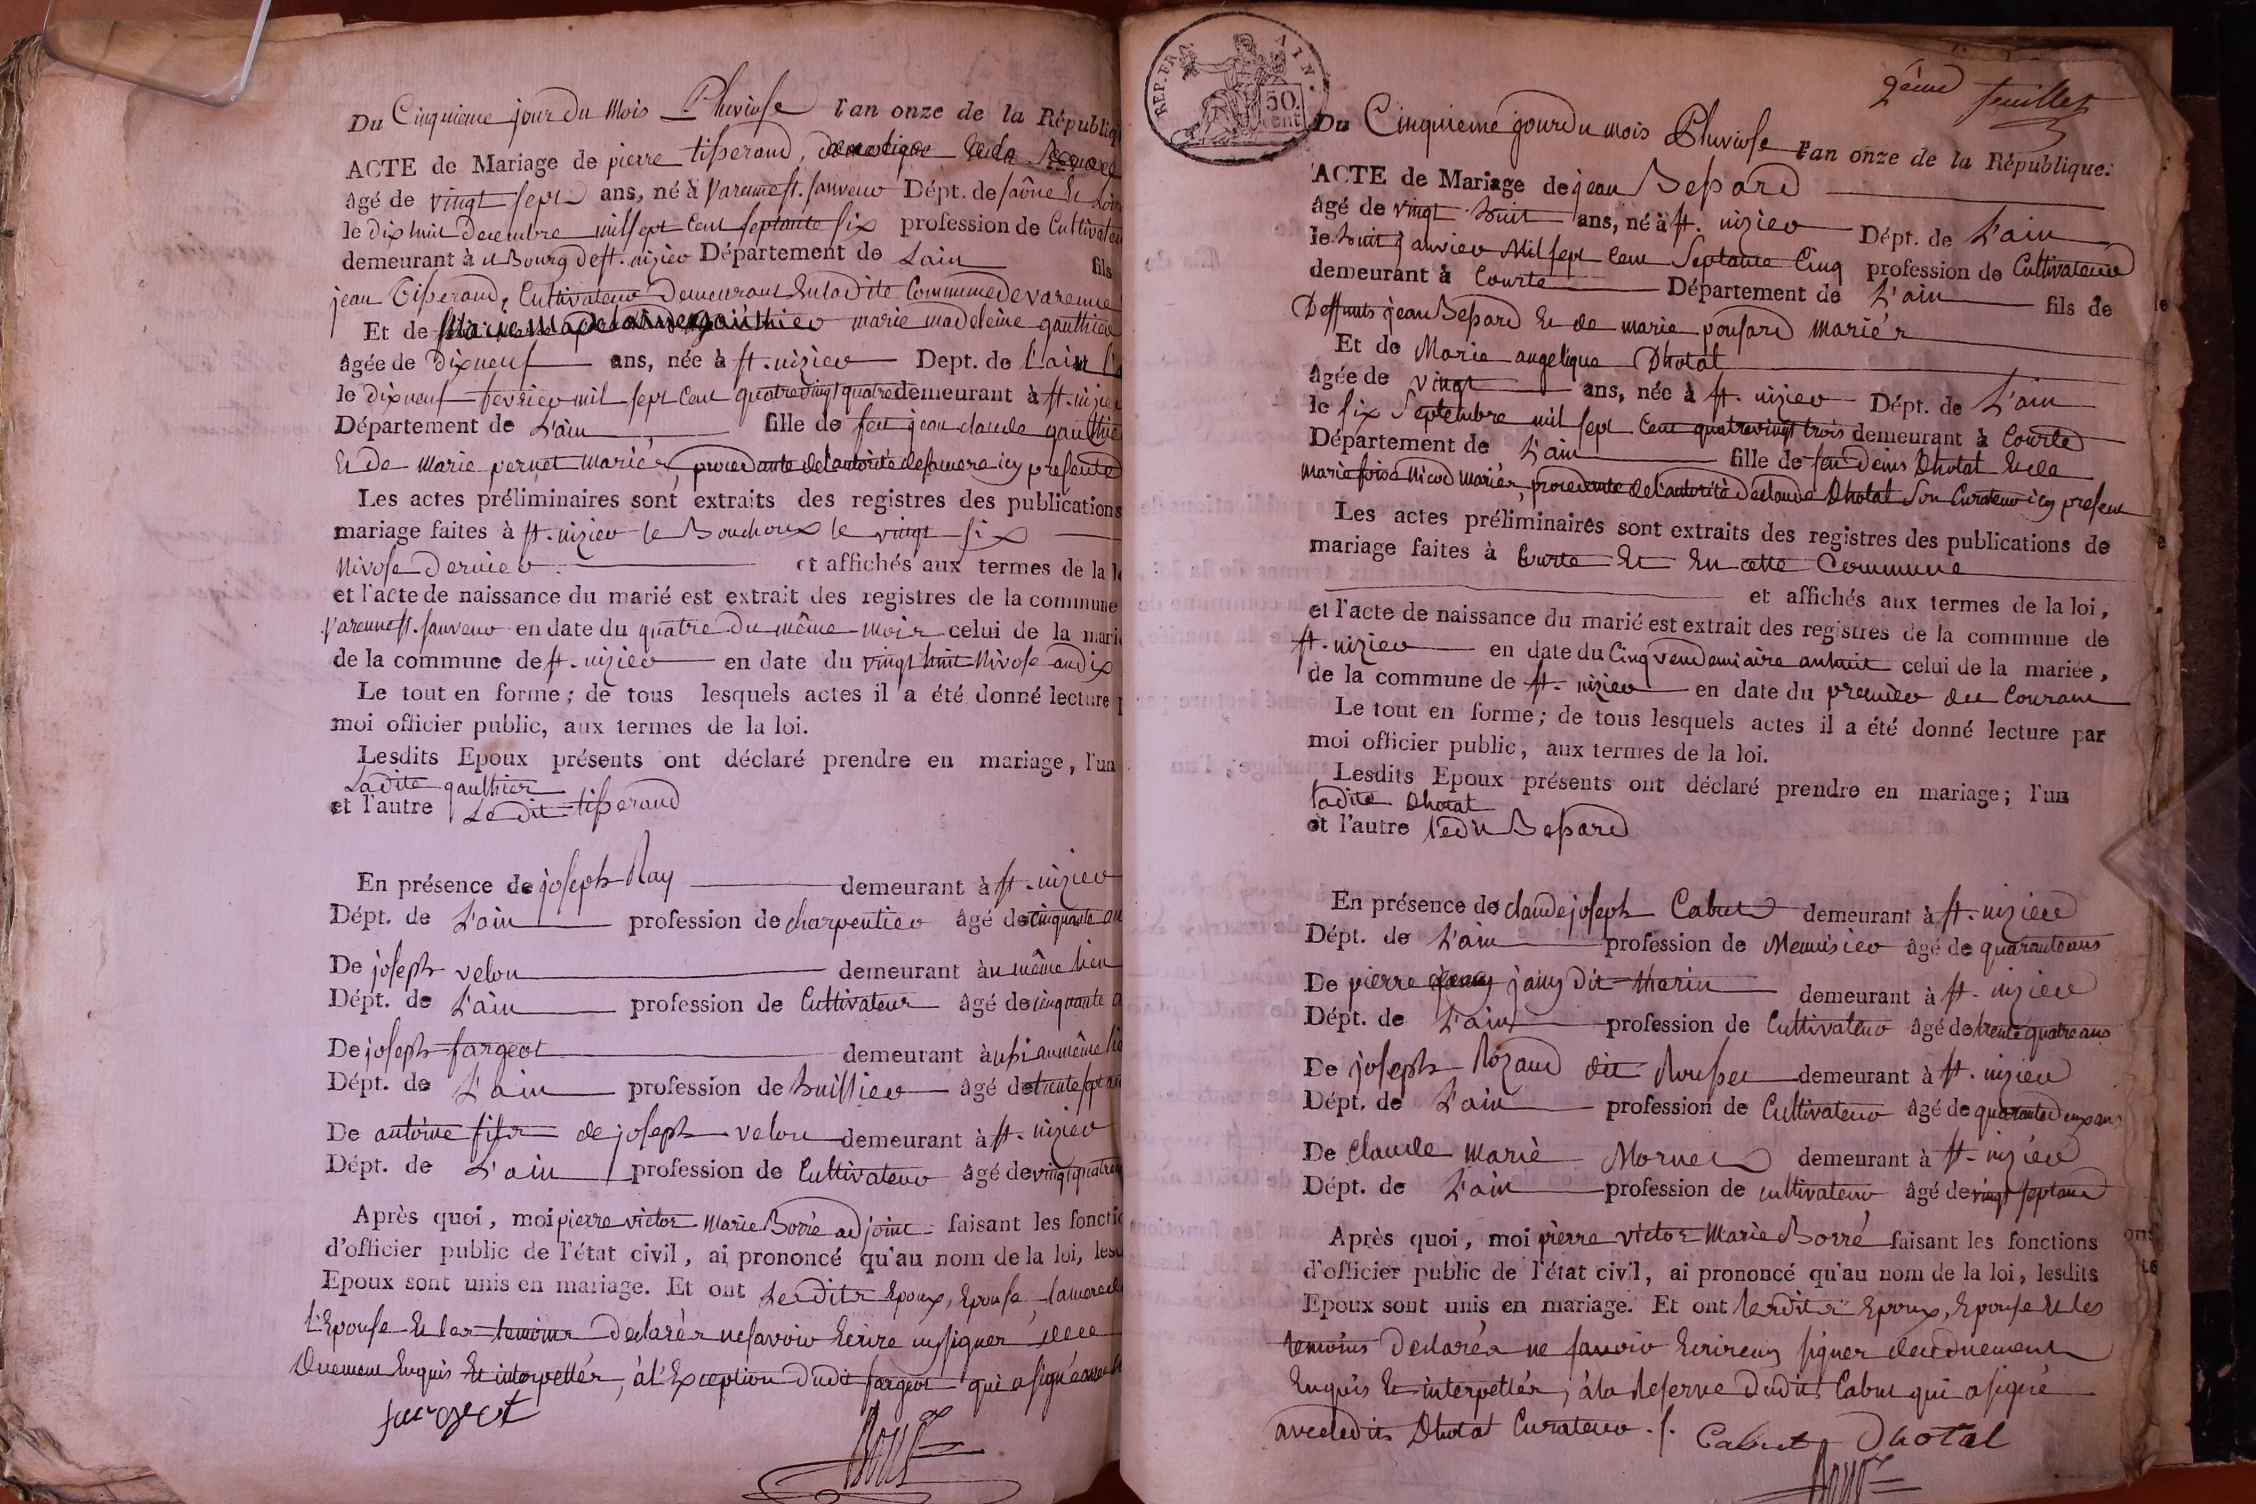 Du Cinquieme jour du mois Pluviose l'an onze de la Républiq
ACTE de Mariage de pierre tisserand,
âgé de vingt sept ans, né à Varenne st. sauveur Dépt. de saône et Loire
le dix huit decembre mil sept cent septante six profession de Cultivateur
demeurant à u Bourg de st. nizier Département de L'ain fils
jean Tisserand, Cultivateur Demeurant En ladite Commune de varenne
Et de marie madeleine gauthier
âgée de Dixneuf ans, née à st. nizier Dept. de L'ain
le dixneuf fevrier mil sept cent quatrevingt quatre demeurant à st. nizier
Département de L'ain, fille de feu jean claude gauthier
Et de marie pernet mariés, procedante de l'autorité de sa mere icy presente
Les actes préliminaires sont extraits des registres des publications
mariage faites à st. nizier le Bouchoux le vingt six
Nivose dernier et affichés aux termes de la l
et l'acte de naissance du marié est extrait des registres de la commune
Varenne st. sauveur en date du quatre du même mois celui de la mari
de la commune de st. nizier en date du vingt huit Nivose an dix
Le tout en forme; de tous lesquels actes il a été donné lecture p
moi officier public, aux termes de la loi.
Lesdits Epoux présents ont déclaré prendre en mariage, l'un
Ladite gauthier
et l'autre Ledit tisserand
En présence de joseph Ray demeurant à st. nizier
Dépt. de L'ain profession de charpentier âgé de cinquante an
De joseph velon demeurant à u même lieu
Dépt. de L'ain profession de Cultivateur âgé de cinquante
De joseph fargeot demeurant à ussi au même lie
Dépt. de L'ain profession de huissier âgé de trente sept an
De antoine fils de joseph velon demeurant à st. nizier
Dépt. de L'ain profession de Cultivateur âgé de vingt quatre
Après quoi, moi pierre victor Marie Borré adjoint faisant les foncti
d'officier public de l'état civil, ai prononcé qu'au nom de la loi, les
Epoux sont unis en mariage. Et ont Lesdits Epoux, Epouse, la mere de
L'Epouse Et les temoins Declarés ne savoir Ecrire ny signer
Duement Enquis Et interpellés, à L'Exception dudit fargeot qui a signé avec
fargeot
Borré
2ème feuillet
REP. FRA. AIN.
50. cent.
Du Cinquieme jour du mois Pluviose l'an onze de la République.
ACTE de Mariage de jean Bessard
âgé de vingt huit ans, né à st. nizier Dépt. de L'ain
le huit janvier Mil sept Cent Septante Cinq profession de Cultivateur
demeurant à Courte Département de L'ain fils de
Deffunts jean Bessard Et de marie ponsard mariés
Et de Marie angelique Dhotal
âgée de vingt ans, née à st. nizier Dépt. de L'ain
le six Septembre mil sept cent quatrevingt trois demeurant à Courte
Département de L'ain fille de feu Denis Dhotal Et de
marie foise Nicod mariés, procedante de l'autorité de claude Dhotal Son Curateur icy present
Les actes préliminaires sont extraits des registres des publications de
mariage faites à Courte Et En cette Commune
et affichés aux termes de la loi,
et l'acte de naissance du marié est extrait des registres de la commune de
st. nizier en date du Cinq vendemiaire an huit celui de la mariée,
de la commune de st. nizier en date du premier du Courant
Le tout en forme; de tous lesquels actes il a été donné lecture par
moi officier public, aux termes de la loi.
Lesdits Epoux présents ont déclaré prendre en mariage; l'un
ladite Dhotal
et l'autre ledit Bessard
En présence de claude joseph Cabut demeurant à st. nizier
Dépt. de L'ain profession de Menuisier âgé de quarante ans
De pierre jany dit therin demeurant à st. nizier
Dépt. de L'ain profession de Cultivateur âgé de trente quatre ans
De joseph Rozand dit Rousset demeurant à st. nizier
Dépt. de L'ain profession de Cultivateur âgé de quarante deux ans
De Claude Marie Mornet demeurant à st. nizier
Dépt. de L'ain profession de cultivateur âgé de vingt sept ans
Après quoi, moi pierre victor Marie Borré faisant les fonctions
d'officier public de l'état civil, ai prononcé qu'au nom de la loi, lesdits
Epoux sont unis en mariage. Et ont lesdits Epoux, Epouse Et les
temoins Declarés ne savoir Ecrire ny signer de ce duement
Enquis Et interpellés, à la Reserve dudit Cabut qui a signé
avec ledit Dhotal Curateur.
Cabut Dhotal
Borré